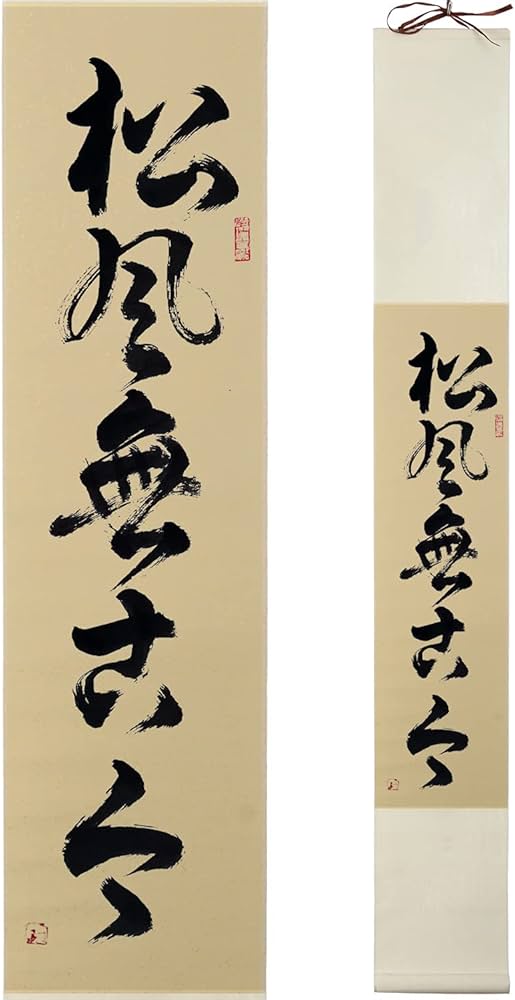 松風無古今
松風無古今